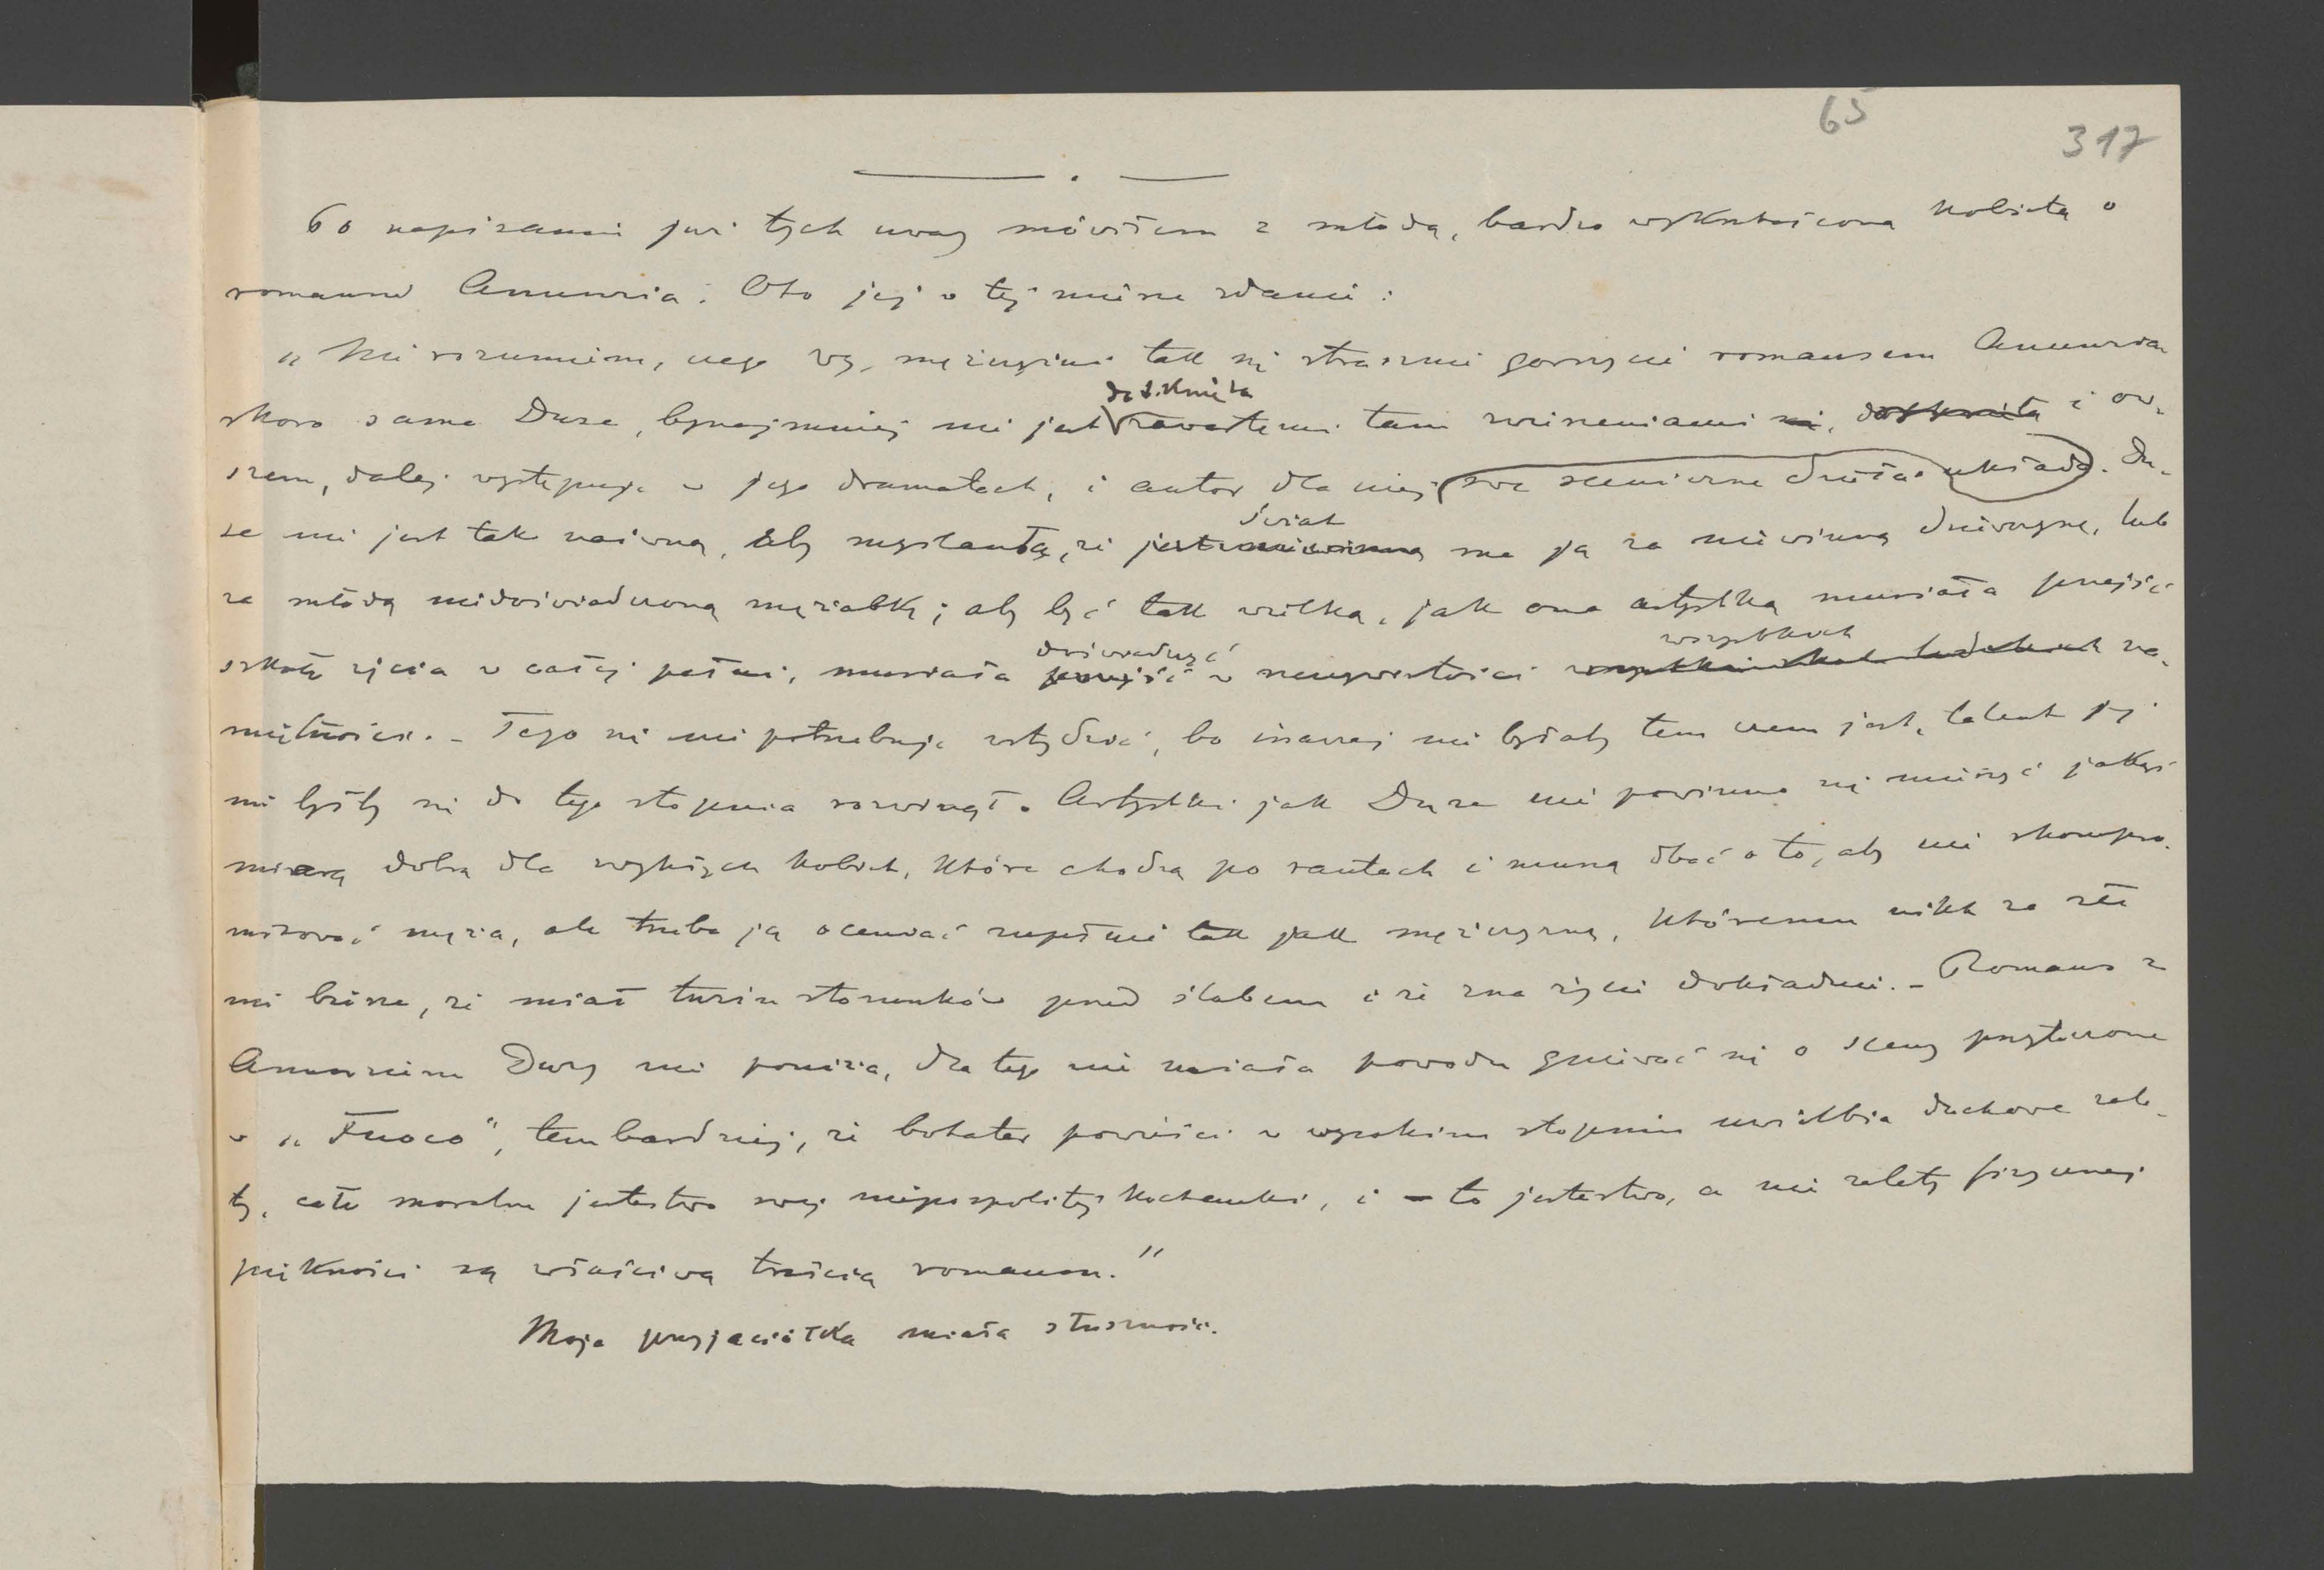 65
317
Po napisaniu już tych uwag mówiłem z młodą, bardzo wykształconą kobietą o
romansie Annunzia. Oto jej o tej mierze zdanie:
„Nie rozumiem, czego wy, mężczyźni tak się strasznie gorszycie romansem Annunzia
skoro sama Duse, bynajmniej nie jest dotknięta zawartemi tam zwierzeniami się, dotknięta i ow-
szem, dalej występuje w jego dramatach, i autor dla niej swe sceniczne dzieła układa. Du-
se nie jest tak naiwną, aby myślała, że jest niewinną świat ma ją za niewinną dziewczynę, lub
za młodą niedoświadczoną mężatkę; aby być tak wielką, jak ona artystką musiała przejść
szkołę życia w całej pełni, musiała przejść doświadczyć w rzeczywistości wszystkich na-
miętności. - Tego się nie potrzebuje wstydzić, bo inaczej nie byłaby tem czem jest, talent jej
nie byłby się do tego stopnia rozwinął. Artystki jak Duse nie powinno się mierzyć jakąś
miarą dobrą dla zwykłych kobiet, które chodzą po rautach i muszą dbać o to, aby nie skompro-
mitować męża, ale trzeba ją oceniać zupełnie tak jak mężczyznę, któremu nikt za złe
nie bierze, że miał tuzin stosunków przed ślubem i że zna życie dokładnie. - Romans z
Annunziem Dusy nie poniża, dla tego nie miała powodu gniewać się o sceny przytoczone
w „Fuoco", tembardziej, że bohater powieści w wysokim stopniu uwielbia duchowe zale-
ty, całe moralne jestestwo swej niepospolitej kochanki, i to jestestwo, a nie zalety fizycznej
piękności są właściwą treścią romansu."
Moja przyjaciółka miała słuszność.